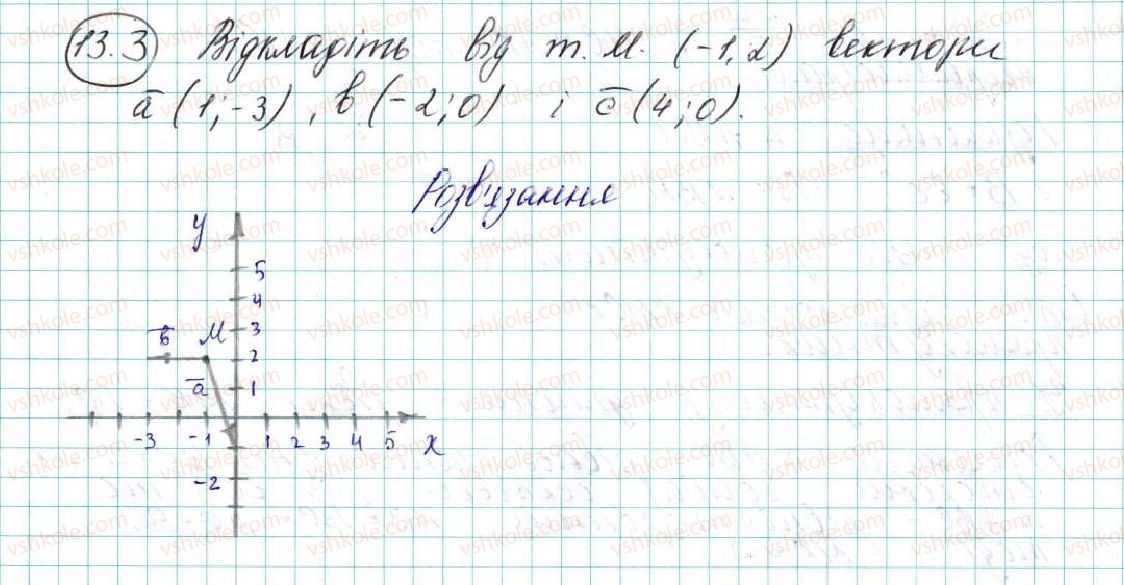 13.3 Відкладіть від т. М. (-1, 2) вектори
a̅ (1; -3), b (-2; 0) і c̅ (4; 0).
Розв'язання
y
5
4
3
b̅ M
2
a̅ 1
-3 -1 1 2 3 4 5 x
-2
vshkole.com